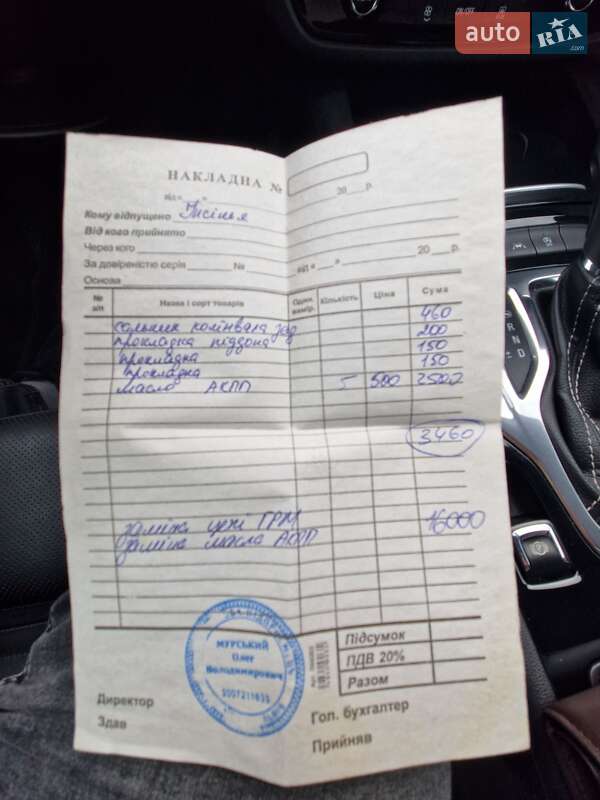 auto RIA.com
OFF
НАКЛАДНА №
від « » 20 р.
Кому відпущено
Від кого прийнято
Через кого
За довіреністю серія № від « » 20 р.
Основа
№ з/п Назва і сорт товарів Один. вимір. Кількість Ціна Сума
сальник колінвала зад 460
прокладка піддона 200
прокладка 150
прокладка 150
масло АКПП 5 500 2500
3460
заміна цепі ГРМ 16000
заміна масла АКПП
Підсумок
ПДВ 20%
Разом
МУРСЬКИЙ
Олег
Володимирович
Директор
Здав
Гол. бухгалтер
Прийняв
R
N
D